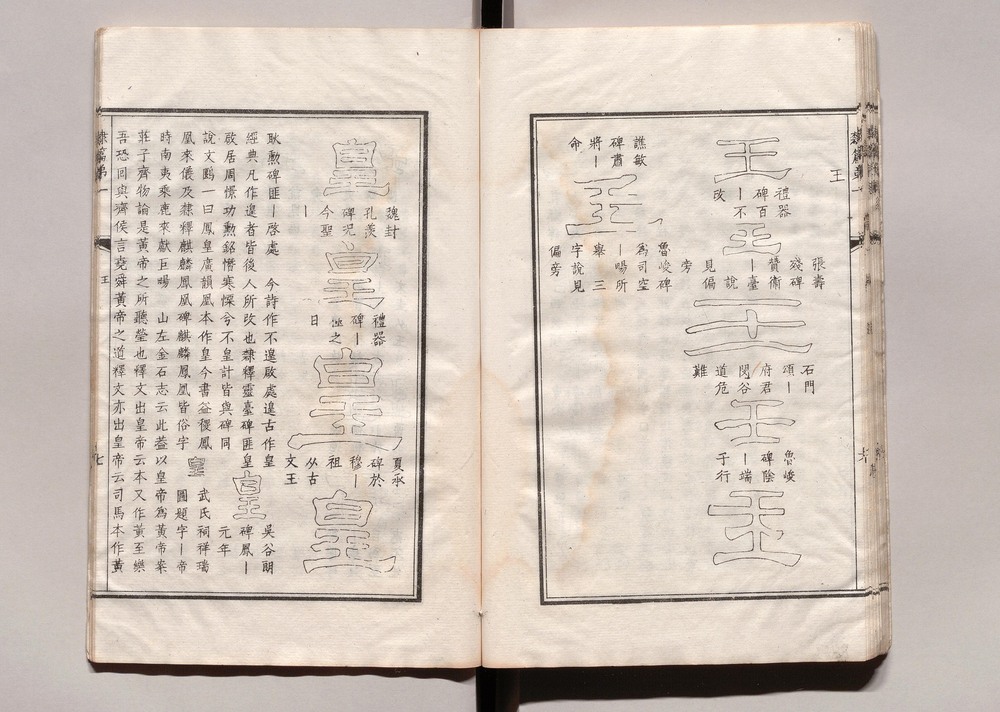 隸篇第一
王
六
王
禮器
碑百
｜不
改
王
張壽
殘碑
贊衛
｜臺
說
見偏
旁
王
石門
頌｜
府君
閔谷
道危
難
王
魯峻
碑陰
｜端
于行
玉
譙敏
碑肅
將｜
命
魯峻碑
為司空
｜暢所
舉 三
字說見
偏旁
皇
魏封
孔羨
碑況
今聖
｜
皇
禮器
碑｜
極之
日
皇
夏承
碑於
穆｜
祖
从古
文王
皇
耿勳碑匪｜啓處 今詩作不遑啟處遑古作皇
經典凡作遑者皆後人所改也隸釋靈臺碑匪皇
啟居周憬功勳銘懵寒慄兮不皇計皆與碑同
說文鶠一曰鳳皇廣韻凰本作皇今書益稷鳳
凰來儀及隸釋麒麟鳳凰碑麒麟鳳凰皆俗字
皇
吳谷朗
碑鳳｜
元年
皇
武氏祠祥瑞
圖題字｜帝
時南夷乘鹿來獻巨暢 山左金石志云此蓋以皇帝為黃帝案
莊子齊物論是黃帝之所聽熒也釋文出皇帝云本又作黃至樂
吾恐回與齊侯言堯舜黃帝之道釋文亦出皇帝云司馬本作黃
隸篇第一
王
七